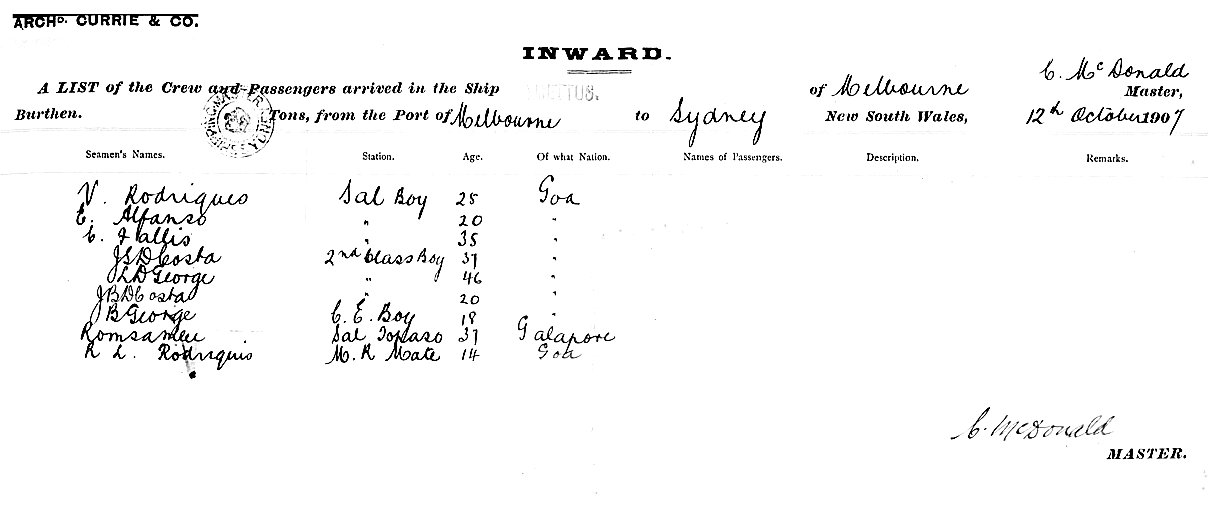 ARCHD. CURRIE & CO.
INWARD.
A LIST of the Crew and Passengers arrived in the Ship of Melbourne C. McDonald Master,
Burthen. Tons, from the Port of Melbourne to Sydney New South Wales, 12th October 1907
Seamen's Names. Station. Age. Of what Nation. Names of Passengers. Description. Remarks.
V. Rodrigues Sal Boy 25 Goa
E. Alfanso " 20 "
C. Fallis " 35 "
JSDCosta 2nd Class Boy 37 "
LD George " 46 "
JBDCosta " 20 "
B George C. E. Boy 18 "
Romsameu Sal Topaso 37 Galapore
R L. Rodriquis M. R Mate 14 Goa
C. McDonald
MASTER.